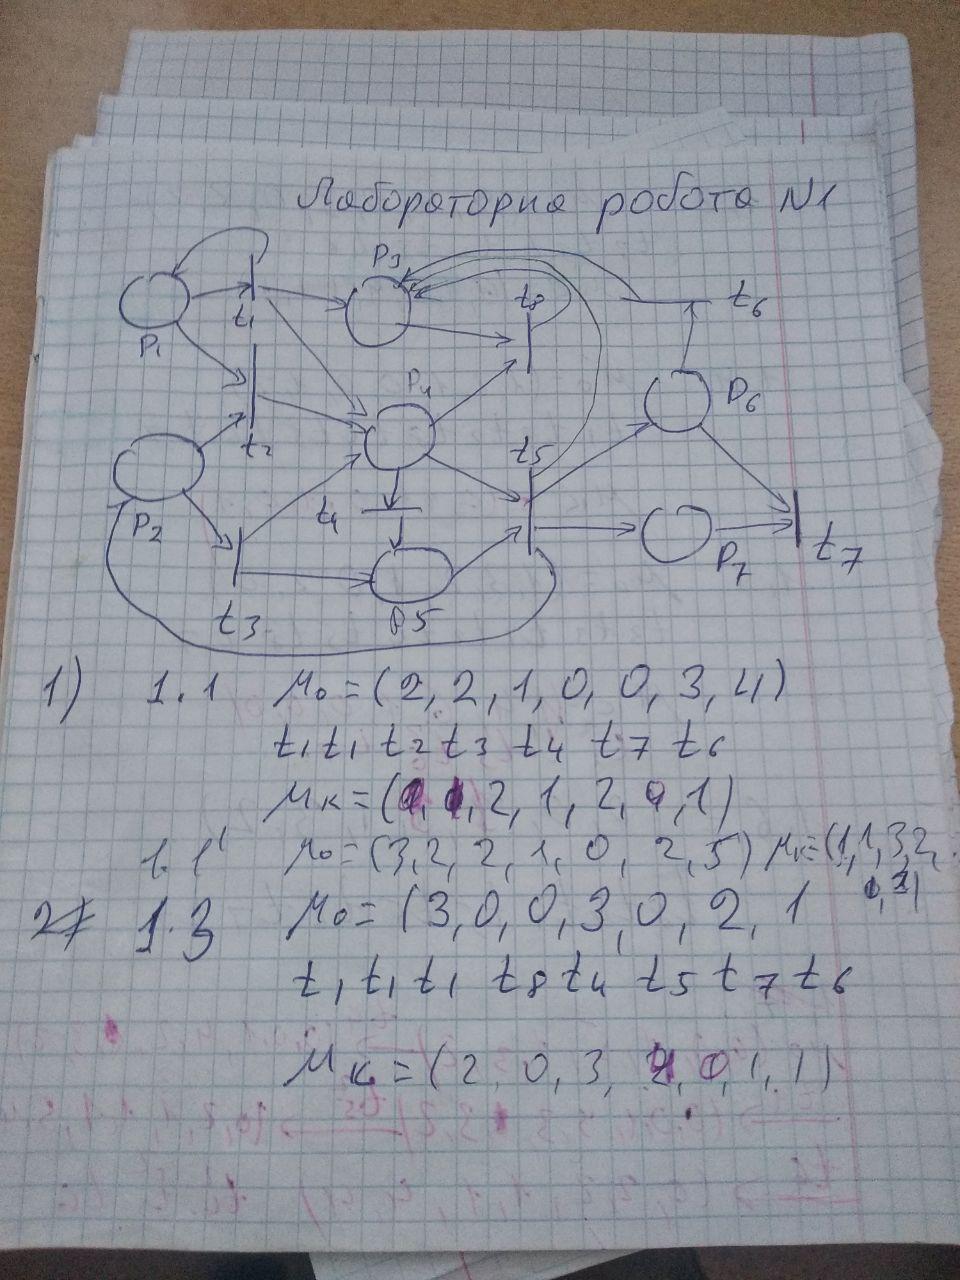 Лабораторна робота №1
P3
t8
t6
t1
P1
P4
P6
t2
t5
t4
P2
P7
t7
t3
P5
1) 1.1 μ0 = (2, 2, 1, 0, 0, 3, 4)
t1 t1 t2 t3 t4 t7 t6
μк = ( , , 2, 1, 2, , 1)
1.1' μ0 = (3, 2, 2, 1, 0, 2, 5) μк = (1, 1, 3, 2,
1.3 μ0 = (3, 0, 0, 3, 0, 2, 1
t1 t1 t1 t8 t4 t5 t7 t6
μк = (2, 0, 3, , 0, 1, 1)